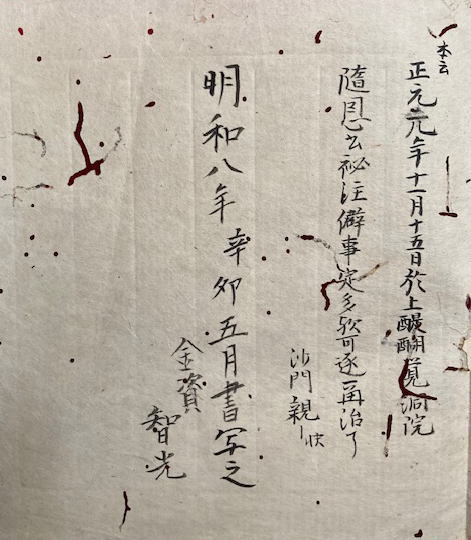 本云
正元元年十一月十五日於上醍醐覚洞院
隨思出祕注僻事定多歟可逐再治了
沙門親快
明和八年辛卯五月書写之
金資智光